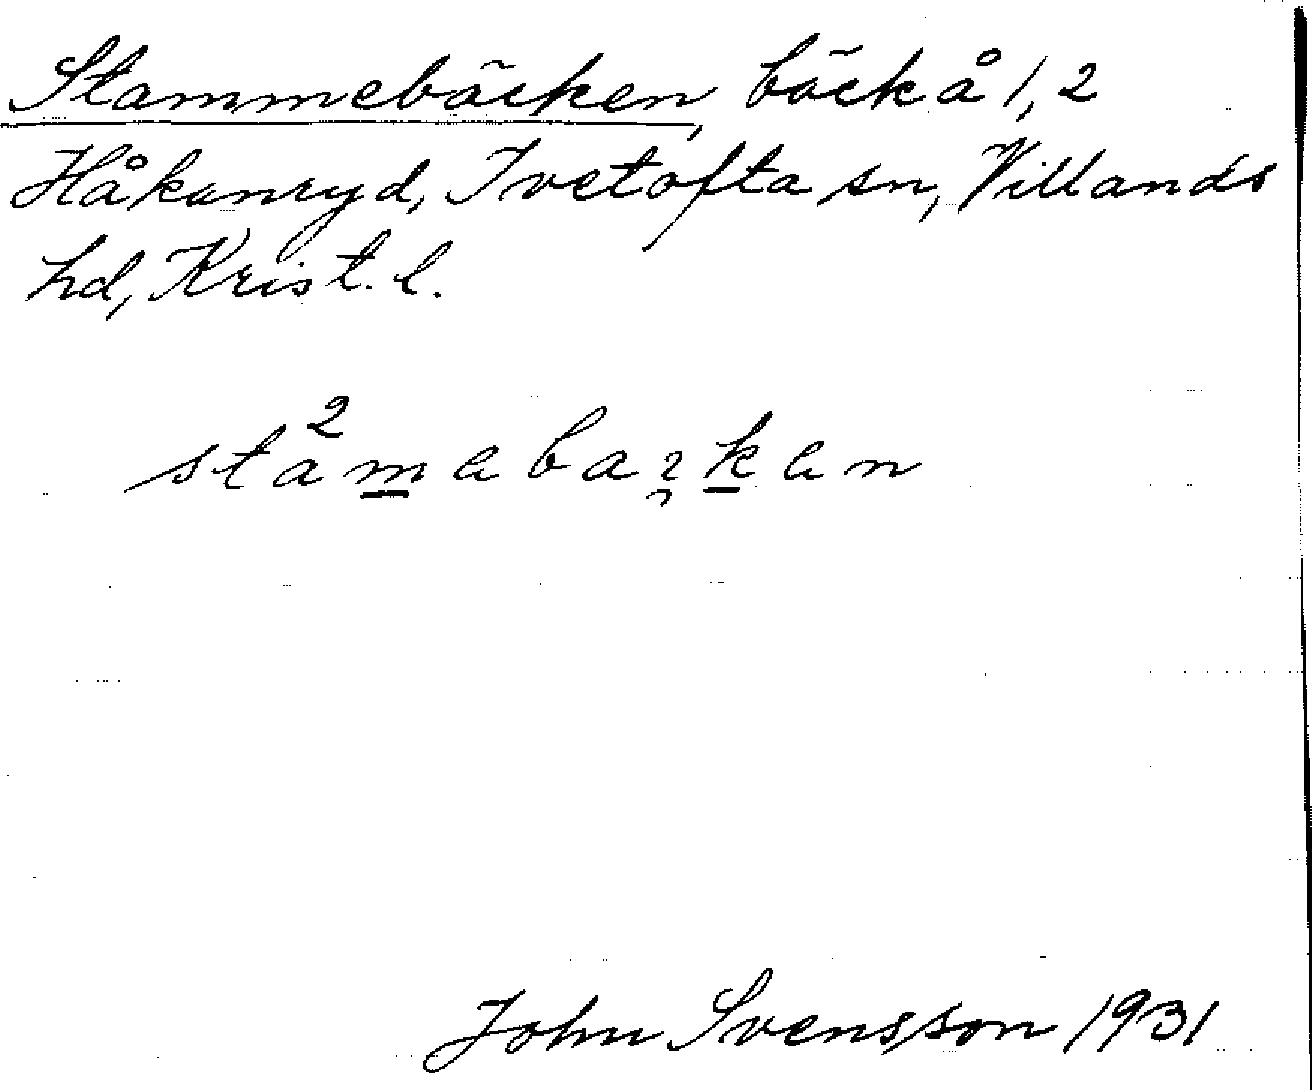 Stammebäcken, bäck å 1, 2
Håkanryd, Ivetofta sn, Villands
hd, Krist. l.
John Svensson 1931